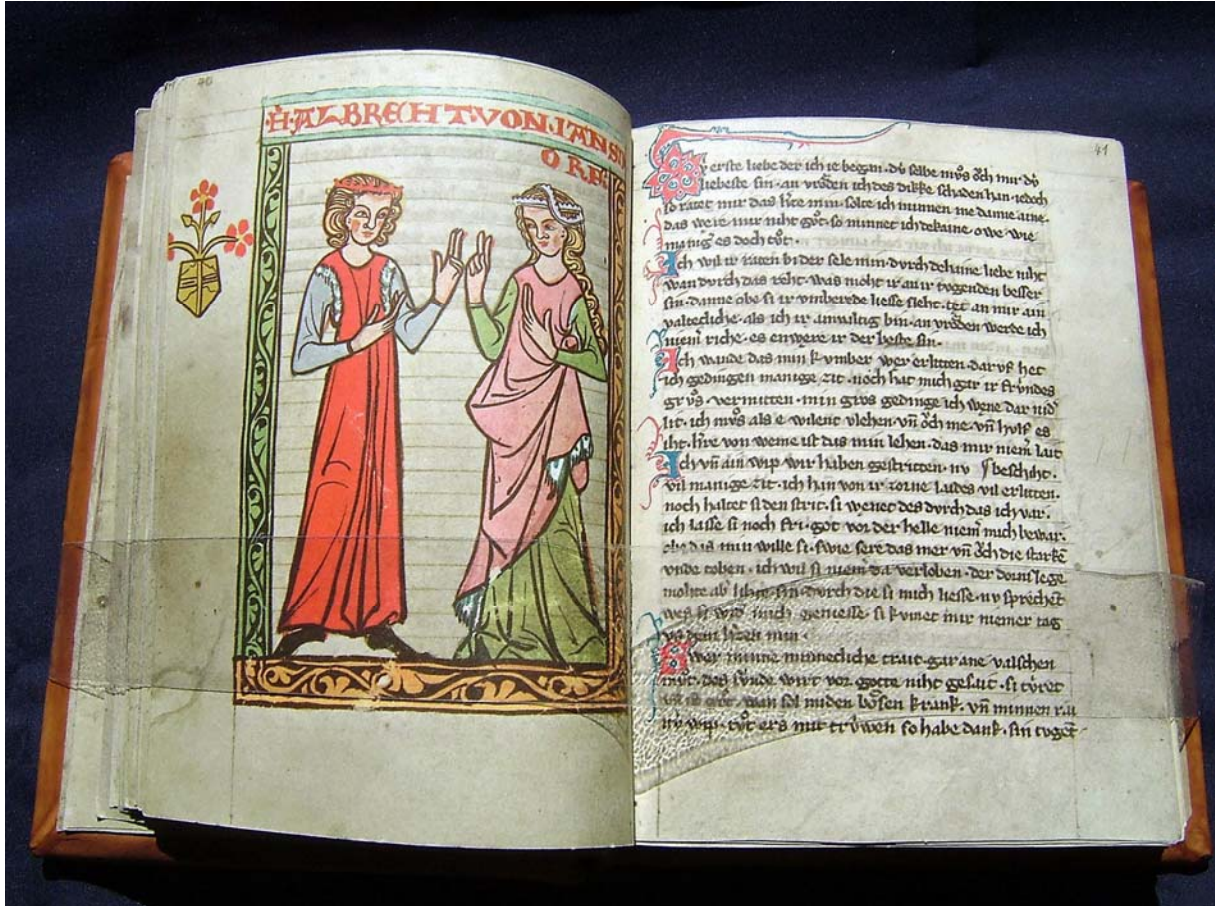 40
·H̀·ALBRECHT·VON·IANSD
ORF
41
Dv́ erste liebe der ich ie began· dv́ selbe mv̊s ǒch mir dv́
liebeste sin· an vrǒden ich des dikke schaden han· iedoch
so ratet mir das h̾ze min· solte ich minnen me danne aine·
das were mir niht gv̊t· so minnet ich dekaine· owe wie
manig̾ es doch tv̊t·
Ich wil ir raten bi der sele min· dvrch dehaine liebe niht
wan dvrch das reht· was moht ir an ir tvgenden besser
sin· danne obe si ir vmberede liesse sleht· tet an mir ain
valtecliche· als ich ir ainvaltig bin· an vrǒden werde ich
niem̾ riche· es enwere ir der beste sin·
Ich wande das min kvmber wer erlitten· dar vf het
ich gedingen manige zit· noch hat mich gar ir frv́ndes
grv̊s vermitten· min gros gedinge ich wene dar nid̾
lit· ich mv̊s als e wilent vlehen· vn̄ ǒch me· vn̄ hvlf es
iht· h̾re von weme ist das min lehen· das mir niem̾ lait
Ich vn̄ ain wip wir haben gestritten· nv beschiht·
vil manige zit· ich han von ir zorne laides vil erlitten·
noch haltet si den strit· si wenet des dvrch das ich var·
ich lasse si noch fri· got vor der helle niem̾ mich bewar·
obe das min wille si· swie sere das mer vn̄ ǒch die starkē
vnde toben· ich wil si niem̾ da verloben· der donr slege
mohte ab̾ libte sin· dvrch die si mich liesse· nv sprechet
wes si wid̾ mich geniesse· si kvmet mir niemer tag
vs dem h̾zen min·
Swer minne minnecliche trait· gar ane valschen
mv̊t· des sv́nde wirt vor gotte niht gesait· si tv́ret
vn̄ ist gv̊t· wan sol miden bǒsen krank· vn̄ minnen rai
nv́ wip· tv̊t ers mit trv́wen so habe dank· sin tvgēt